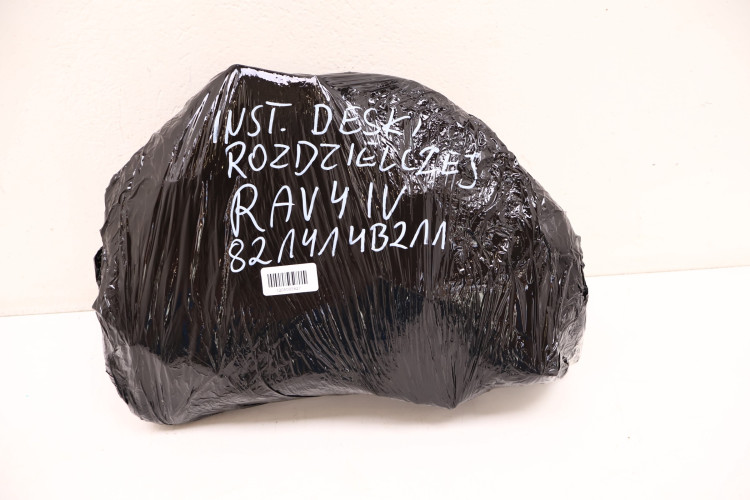 INST. DESKI
ROZDZIELCZEJ
RAV4 IV
821414B211